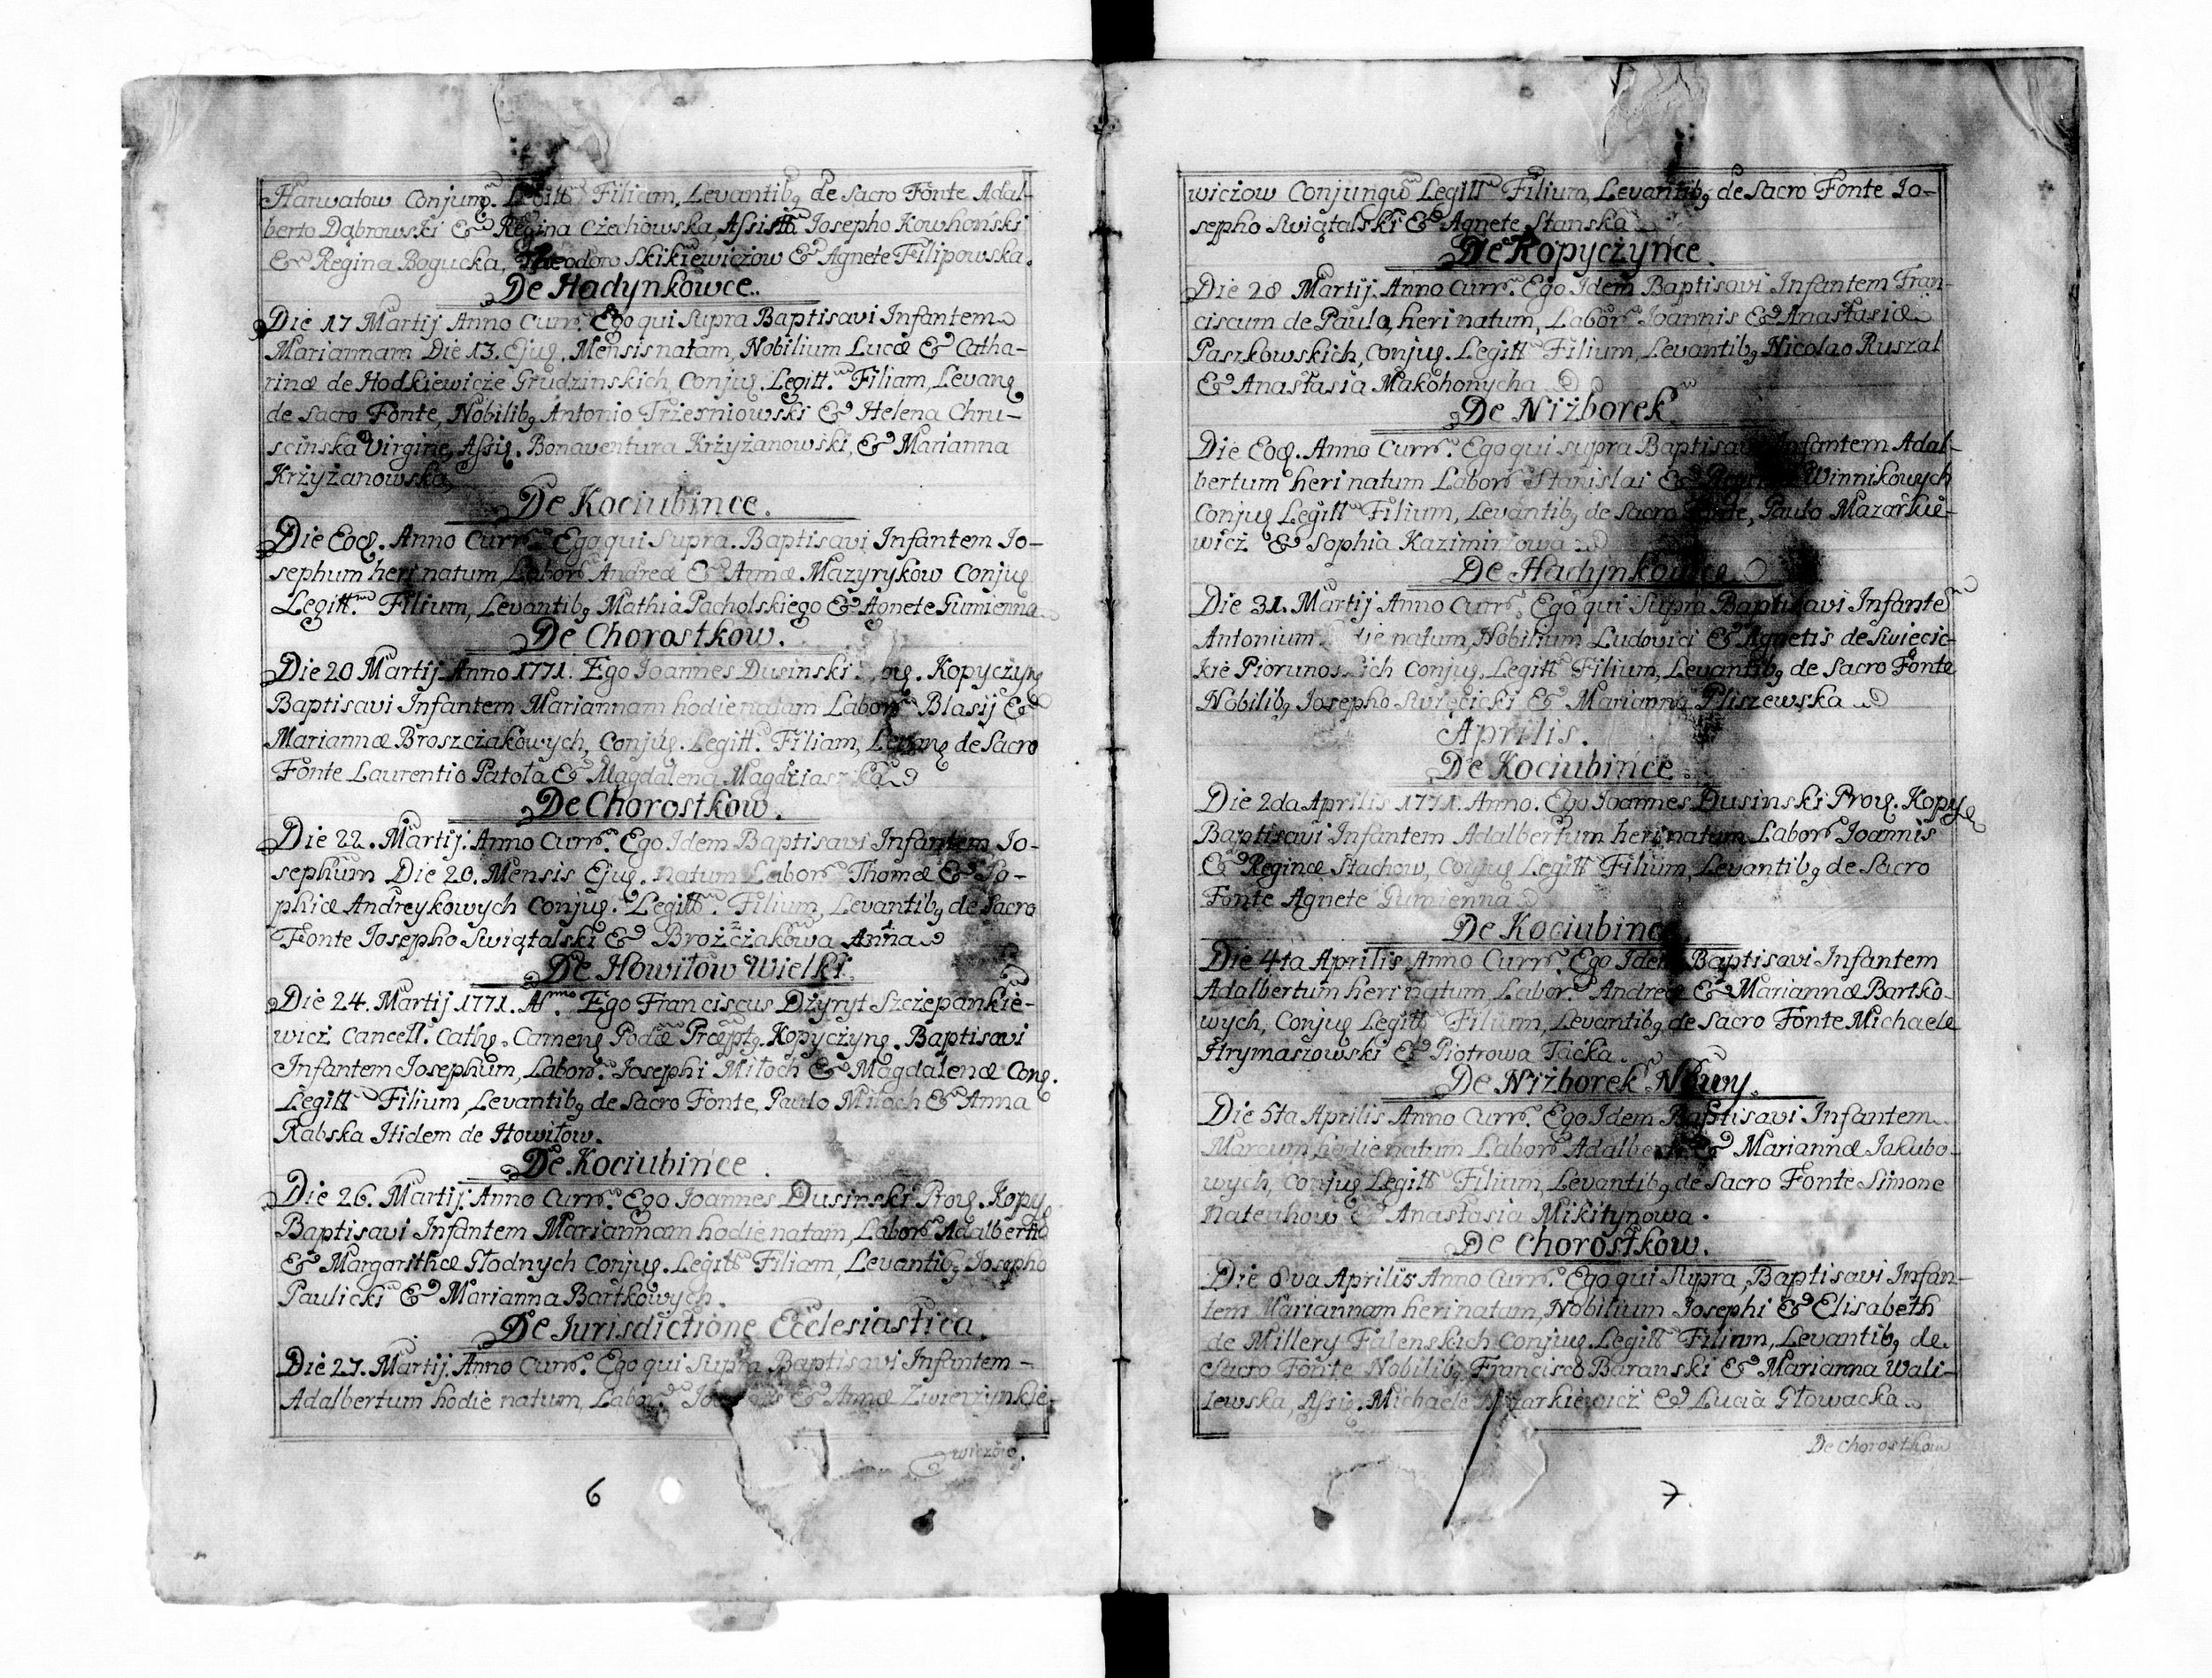 Harwatow Conjum. Legitt. Filiam, Levantibq de Sacro Fonte Adal-
berto Dąbrowski & Regina Czechowska, Assistt. Josepho Kowhański
& Regina Bogucka, Theodoro Skikiewiczow & Agnete Filipowska.
De Hadynkowce.
Die 17 Martij Anno Curr. Ego qui Supra Baptisavi Infantem
Mariannam Die 13. Ejuq. Mensis natam, Nobilium Lucæ & Catha-
rinæ de Hodkiewicze Grudzinskich, Conjuq. Legitt. Filiam, Levanq
de Sacro Fonte, Nobilibq Antonio Trzesniowski & Helena Chru-
scinska Virgine, Assiq. Bonaventura Krzyżanowski, & Marianna
Krzyżanowska,
De Kociubince.
Die Eoq. Anno Curr. Ego qui Supra. Baptisavi Infantem Jo-
sephum heri natum Labor. Andreæ & Annæ Mazyrykow Conjuq
Legitt. Filium, Levantibq Mathia Pacholskiego & Agnete Gumienna
De Chorostkow.
Die 20 Martij Anno 1771. Ego Joannes Dusinski Kopyczynq
Baptisavi Infantem Mariannam hodie natam Labor. Blasij &
Mariannæ Broszciakowych, Conjuq. Legitt. Filiam, Levanq de Sacro
Fonte Laurentio Patoła & Magdalena
De Chorostkow.
Die 22. Martij. Anno Curr. Ego Idem Baptisavi Infantem Jo-
sephum Die 20. Mensis Ejuq. natum Labor. Thomæ & So-
phiæ Andreykowych Conjuq. Legitt. Filium, Levantibq de Sacro
Fonte Josepho Swiątalski & Brozcżakowa Anna
De Howiłow Wielki.
Die 24. Martij 1771. A. Ego Franciscus Dżyryt Szczepankie-
wicz Cancell. Cathq. Cameneq Podæ Præptq. Kopyczynq. Baptisavi
Infantem Josephum, Labor. Josephi Miłoch & Magdalenæ Conq.
Legitt Filium, Levantibq de Sacro Fonte, Paulo Miłoch & Anna
Rabska Itidem de Howiłow.
De Kociubince.
Die 26. Martij. Anno Curr. Ego Joannes Dusinski Proq. Kopyq
Baptisavi Infantem Mariannam hodie natam, Labor. Adalberti
& Margarithæ Głodnych Conjuq. Legitt. Filiam, Levantibq Josepho
Paulicki & Marianna Bartkowych.
De Jurisdictione Ecclesiastica.
Die 27. Martij. Anno Curr. Ego qui Supra Baptisavi Infantem -
Adalbertum hodie natum, Labor. & Annæ Zwierzynkie-
wiczow.
6
wiczow Conjungu Legitt Filium, Levantibq de Sacro Fonte Jo-
sepho Swiątalski & Agnete Stanska
De Kopyczynce.
Die 28 Martij. Anno Curr. Ego Idem Baptisavi Infantem Fran-
ciscum de Paula, heri natum, Labor. Joannis & Anastasiæ
Paszkowskich, Conjuq. Legitt Filium, Levantibq Nicolao Ruszal
& Anastasia Makohonycha
De Niżborek
Die Eoq. Anno Curr. Ego qui supra Baptisavi Infantem Adal-
bertum heri natum Labor Stanislai & Winnikowych
Conjuq Legitt Filium, Levantibq de Sacro Fonte, Paulo Mazarkie-
wicz & Sophia Kazimirzowa
De Hadynkowce
Die 31. Martij Anno Curr. Ego qui Supra Baptisavi Infante
Antonium natum, Nobilium Ludovici & Agnetis de Swięcic-
kie Conjuq. Legitt Filium, Levantibq de Sacro Fonte
Nobilibq Josepho Swięcicki & Marianna Pliszewska
Aprilis.
De Kociubince.
Die 2da Aprilis 1771. Anno. Ego Joannes Dusinski Proq. Kopyq
Baptisavi Infantem Adalbertum heri natum Labor Joannis
& Reginæ Stachow, Conjuq Legitt Filium, Levantibq de Sacro
Fonte Agnete Gumienna
De Kociubince
Die 4ta Aprilis Anno Curr. Ego Idem Baptisavi Infantem
Adalbertum heri natum Labor. Andreæ & Mariannæ Bartko-
wych, Conjuq Legitt Filium, Levantibq de Sacro Fonte Michaele
Hrymaszowski & Piotrowa Tacka.
De Niżborek Nowy.
Die 5ta Aprilis Anno Curr. Ego Idem Baptisavi Infantem
Marcum, hodie natum Labor Adalberti & Mariannæ Jakubo-
wych, Conjuq Legitt Filium, Levantibq de Sacro Fonte Simone
& Anastasia Mikitynowa.
De Chorostkow.
Die 8va Aprilis Anno Curr. Ego qui Supra, Baptisavi Infan-
tem Mariannam heri natam, Nobilium Josephi & Elisabeth
de Millery Falenskich Conjuq. Legitt Filium, Levantibq de
Sacro Fonte Nobilibq Francisco Baranski & Marianna Wali-
lewska, Assiq. Michaele & Lucia Głowacka
De Chorostkow
7